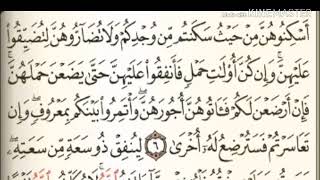 KINEMASTER
أَسْكِنُوهُنَّ مِنْ حَيْثُ سَكَنتُم مِّن وُجْدِكُمْ وَلَا تُضَآرُّوهُنَّ لِتُضَيِّقُوا۟
عَلَيْهِنَّ ۚ وَإِن كُنَّ أُو۟لَٰتِ حَمْلٍ فَأَنفِقُوا۟ عَلَيْهِنَّ حَتَّىٰ يَضَعْنَ حَمْلَهُنَّ ۚ
فَإِنْ أَرْضَعْنَ لَكُمْ فَـَٔاتُوهُنَّ أُجُورَهُنَّ ۖ وَأْتَمِرُوا۟ بَيْنَكُم بِمَعْرُوفٍ ۖ وَإِن
تَعَاسَرْتُمْ فَسَتُرْضِعُ لَهُۥٓ أُخْرَىٰ ٦ لِيُنفِقْ ذُو سَعَةٍ مِّن سَعَتِهِۦ ۖ